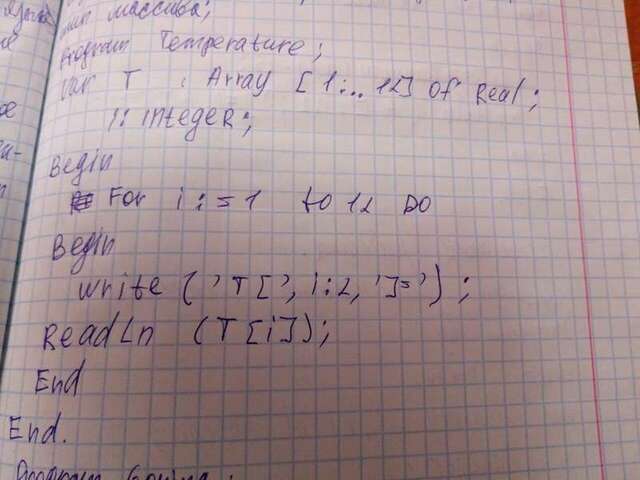 массива;
program Temperature;
var T : Array [1:..12] of Real;
i: integeR;
Begin
For i:=1 to 12 DO
Begin
write ('T[', i:2, ']=');
ReadLn (T[i]);
End
End.
Program